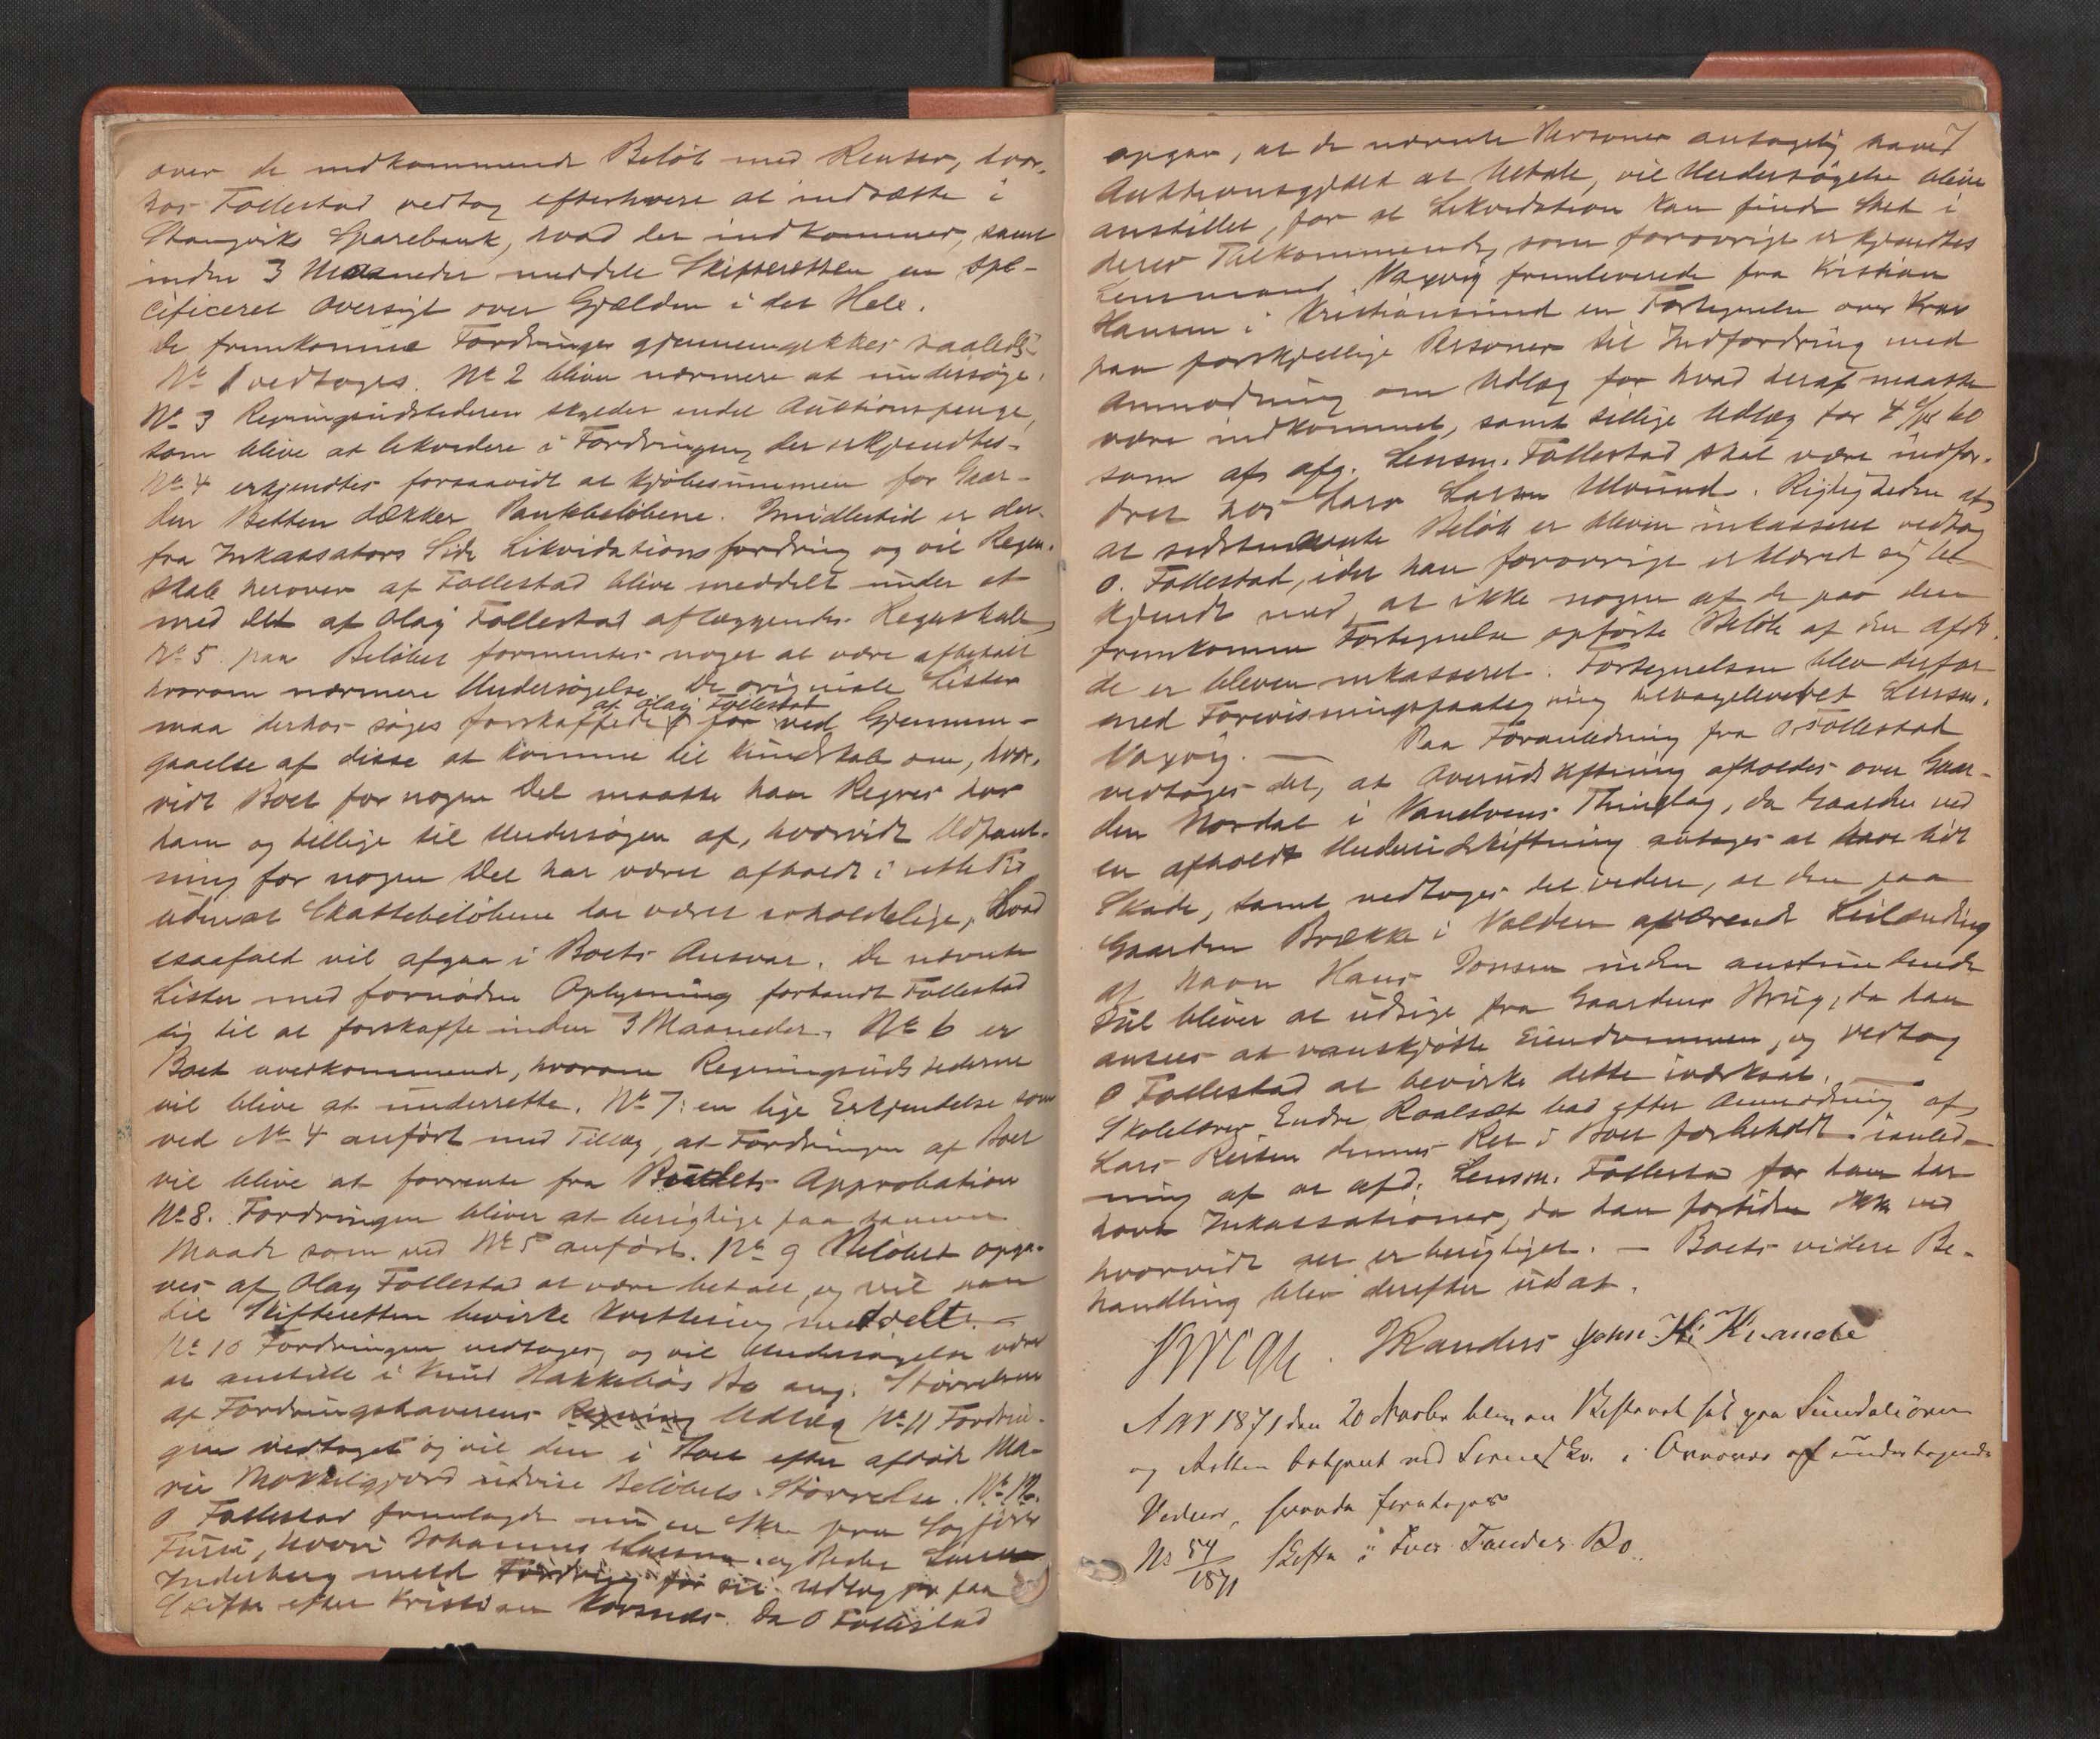 over de indkommende Beløb med Renter, hvor-
hos Follestad vedtog efterhvert at indsætte i
Stangviks Sparebank, hvad der indkommer, samt
inden 3 Maaneder meddele Skifteretten en spe-
cificeret Oversigt over Gjælden i det Hele.
De fremkomne Fordringer gjennemgikkes saaledes
No 1 vedtoges. No 2 bliver nærmere at undersøge.
No 3 Regningsudstederen skylder endel Auktionspenge,
som blive at likvidere i Fordringen, der erkjendtes.
No 4 erkjendtes forsaavidt at Kjøbesummen for Gaar-
den Betten dækker Pantebeløbene. Imidlertid er der
fra Inkassators Side Likvidationsfordring og vil Regn-
skab herover af Follestad blive meddelt under et
med det af Olaf Follestad aflæggendes Regnskab
No 5. paa Beløbet formentes noget at være afbetalt
hvorom nærmere Undersøgelse. De originale Lister
maa derhos søges forskaffede af Olaf Follestad for ved Gjennem-
gaaelse af disse at komme til Kundskab om, hvor-
vidt Boet for nogen Del maatte have Regres hos
ham og tillige til Undersøgen af, hvorvidt Udpant-
ning for nogen Del har været afholdt i rette Tid
uden at Skattebeløbene har været erholdelige, hvad
isaafald vil afgaa i Boets Ansvar. De nævnte
Lister med fornøden Oplysning forbandt Follestad
sig til at forskaffe inden 3 Maaneder. No 6 er
Boet uvedkommende, hvorom Regningsudstederne
vil blive at underrette. No 7: en lige Erkjendelse som
ved No 4 anført med Tillæg, at Fordringen af Boet
vil blive at forrente fra Budets Approbation
No 8. Fordringen bliver at berigtige paa samme
Maade som ved No 5 anført. No 9 Beløbet opga-
ves af Olaf Follestad at være betalt, og vil han
til Skifteretten bevirke Kvittering meddelt.
No 10 Fordringen vedtoges, og vil Undersøgelse være
at anstille i Knud Hakkebøs Bo ang. Størrelsen
af Fordringshaverens Regning Udlæg No 11 Fordrin-
gen vedtoget og vil den i Boet efter afdøde Ma-
rie udvise Beløbets Størrelse. No 12.
O Follestad fremlagde nu en Skr. fra Sagfører
Furu, hvori Johannes og Peder Larsen
Inderberg meldt Fordring for sit Udlæg paa
Skifte efter Kristian. Da O Follestad
7
opgav, at de nævnte Personer antagelig havde
Auktionsgjæld at betale, vil Undersøgelse blive
anstillet, for at Likvidation kan finde Sted i
deres Tilkommende, som forøvrigt erkjendtes
Lensmand Vaxvig fremleverede fra Kristian
Hansen i Kristiansund en Fortegnelse over Krav
paa forskjellige Personer til Indfordring med
Anmodning om Udlæg for hvad deraf maatte
være indkommet, samt tillige Udlæg for 4
som af afg. Lensm. Follestad skal være indfor-
dret hos Lars Larsen Ulvund. Rigtigheden af
at sidstnævnte Beløb er bleven inkasseret vedtog
O. Follestad, idet han forøvrigt erklæret sig be-
kjendt med, at ikke nogen af de paa den
fremkomne Fortegnelse opførte Beløb af den afdø-
de er bleven inkasseret. Fortegnelsen blev derfor
med Forevisningspaategning tilbageleveret Lensm.
Vaxvig. — Paa Foranledning fra O Follestad
vedtoges det, at Overudskiftning afholdes over Gaar-
den Nordal i Vandvens Thinglag, da Gaarden ved
en afholdt Underudskiftning antages at have lidt
Skade, samt vedtoges det videre, at den paa
Gaarden Brække i Valden værende Leilænding
af Navn Hans Jonsen inden anstundende
Jul bliver at udsige fra Gaardens Brug, da han
ansees at vanskjøtte Eiendommen, og vedtog
O Follestad at bevirke dette iværksat.
Skolelærer Endre Raalsæt bad efter Anmodning af
Lars Reiten dennes Ret i Boet forbeholdt i anled-
ning af at afd. Lensm. Follestad for ham har
havt Inkassationer, da han fortiden ikke ved
hvorvidt det er berigtiget. — Boets videre Be-
handling blev derefter udsat.
Randers John K. Kvande
Aar 1871 den 20 blev en Skifteret sat paa Sundalsøren
og Retten betjent ved Sorenskr. i Overvær af undertegnede
Vidner, hvorda foretoges
No 54/1871 Skifte i Iver Bo.